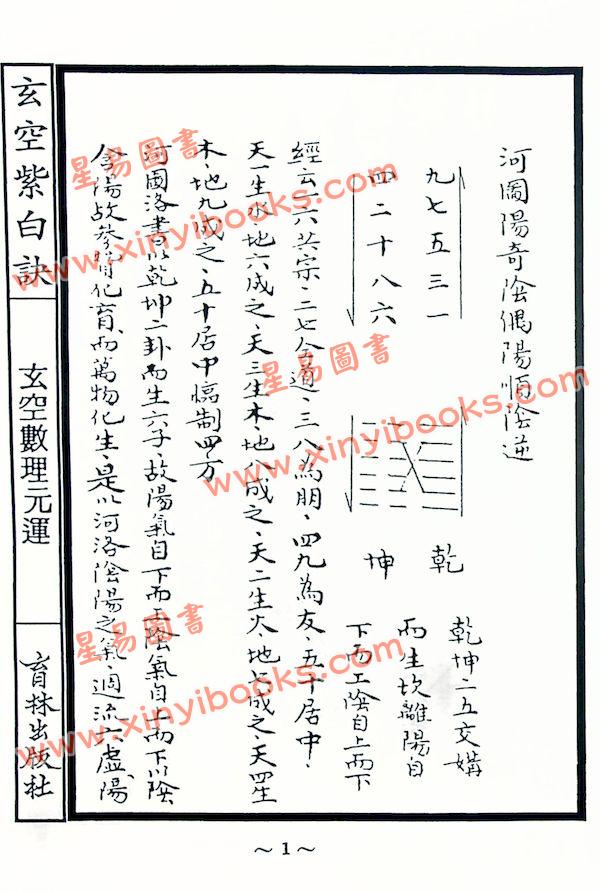 河圖陽奇陰偶陽順陰逆
九七五三一
四二十八六
乾
坤
乾坤二五交媾
而生坎離陽自
下而上陰自上而下
經云一六共宗、二七仝道、三八為朋、四九為友、五十居中、
天一生水、地六成之、天三生木、地八成之、天二生火、地七成之、天四生
木、地九成之、五十居中 制四方
河圖洛書以乾坤二卦而生六子、故陽氣自下而上陰氣自上而下以陰
含陽故 化育、而萬物化生、是以河洛陰陽之氣、週流六虛、陽
玄空紫白訣
玄空數理元運
育林出版社
~ 1 ~
星易圖書
www.xinyibooks.com
星易圖書
www.xinyibooks.com
星易圖書
www.xinyibooks.com